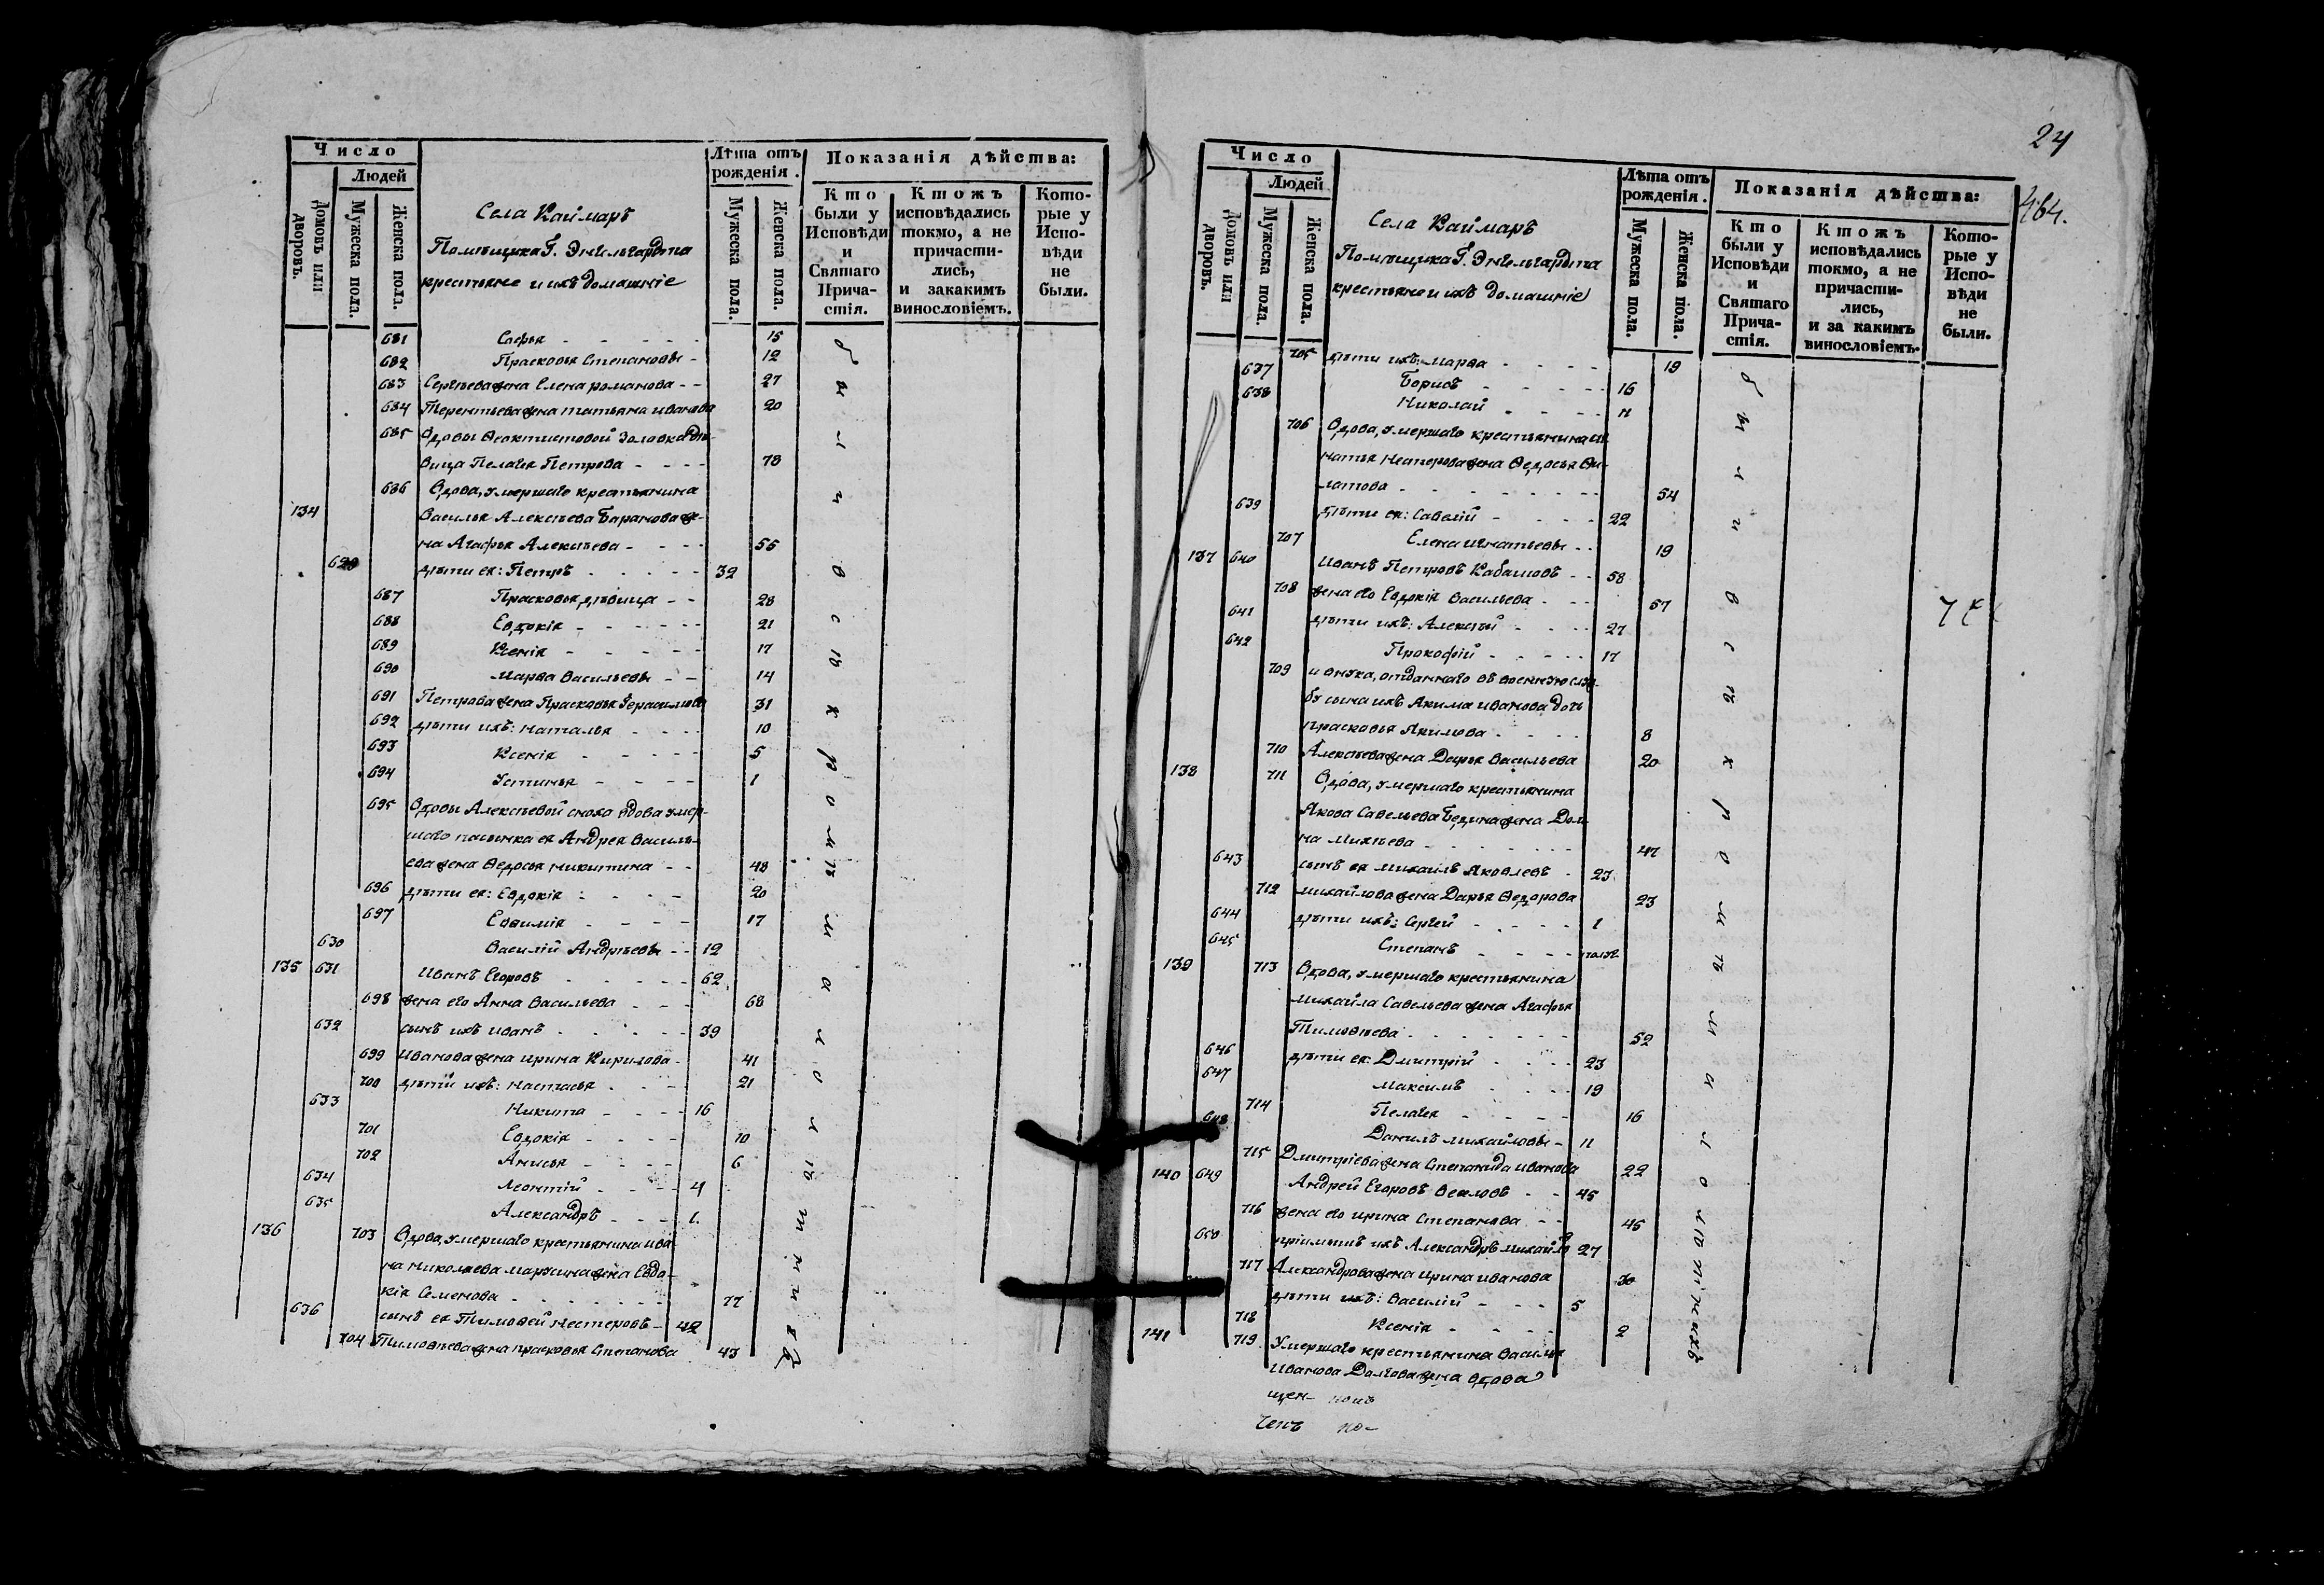 Число
Людей
Домовъ или дворовъ.
Мужеска пола.
Женска пола.
Села Каймаръ
Помѣщика Г. Энгельгардта
крестьяне и ихъ домашніе
Лѣта отъ рожденія.
Мужеска пола.
Женска пола.
Показанія дѣйства:
Кто были у Исповѣди и Святаго Причастія.
Ктожъ исповѣдались токмо, а не причастились, и закакимъ винословіемъ.
Которые у Исповѣди не были.
681 Софья - - - - - 15
682 Прасковья Степановы - 12
683 Сергѣева жена Елена Романова - - 27
684 Терентьева жена Татьяна Иванова 20
685 Вдовы Феоктистовой золовка дѣ-
вица Пелагея Петрова - - - - 78
134 686 Вдова, умершаго крестьянина
Василья Алексѣева Баранова же-
на Агафья Алексѣева - - - - 55
629 дѣти ея: Петръ - - - - - 32
687 Прасковья дѣвица - - 28
688 Евдокія - - - - - - 21
689 Ксенія - - - - - 17
690 Марѳа Васильевы - - 14
691 Петрова жена Прасковья Герасимова 31
692 дѣти ихъ: Наталья - - - - 10
693 Ксенія - - - - - 5
694 Устинья - - - - 1
695 Вдовы Алексѣевой сноха вдова умер-
шаго пасынка ея Андрея Василь-
ева жена Ѳедосья Никитина - - 48
696 дѣти ея: Евдокія - - - - 20
697 Евѳимія - - - - 17
630 Василій Андрѣевы - - 12
135 631 Иванъ Егоровъ - - - - - 62
698 жена его Анна Васильева - - - 68
632 сынъ ихъ Иванъ - - - - - 39
699 Иванова жена Ирина Кирилова - 41
700 дѣти ихъ: Настасья - - - - 21
633 Никита - - - - 16
701 Евдокія - - - - 10
702 Анисья - - - - 6
634 Леонтій - - - - 4
635 Александръ - - - 1.
136 703 Вдова, умершаго крестьянина Ива-
на Николаева Маркина жена Евдо-
кія Семенова - - - - - - - 77
636 сынъ ея Тимоѳей Нестеровъ - 42
704 Тимоѳѣева жена Прасковья Степанова 43
24
464.
Число
Людей
Домовъ или дворовъ.
Мужеска пола.
Женска пола.
Села Каймаръ
Помѣщика Г. Энгельгардта
крестьяне и ихъ домашніе
Лѣта отъ рожденія.
Мужеска пола.
Женска пола.
Показанія дѣйства:
Кто были у Исповѣди и Святаго Причастія.
Ктожъ исповѣдались токмо, а не причастились, и за какимъ винословіемъ.
Которые у Исповѣди не были.
705 дѣти ихъ: Марѳа - - - - 19
637 Борисъ - - - - - 16
638 Николай - - - - 11
706 Вдова, умершаго крестьянина Иг-
натья Нестерова жена Ѳедосья Фи-
латова - - - - - - - - 54
639 дѣти ея: Савелій - - - - 22
707 Елена Игнатьевы - - 19
137 640 Иванъ Петровъ Кабашовъ - - 58
708 жена его Евдокія Васильева - - - 57
641 дѣти ихъ: Алексѣй - - - - 27
642 Прокофій - - - - - 17
709 и внука, отданнаго въ военную служ-
бу сына ихъ Акима Иванова дочь
Прасковья Якимова - - - - 8
710 Алексѣева жена Дарья Васильева 20
138 711 Вдова, умершаго крестьянина
Якова Савельева Бедина жена Дом-
на Михѣева - - - - - - - 47
643 сынъ ея Михаилъ Яковлевъ - 23
712 Михайлова жена Дарья Ѳедорова 23
644 дѣти ихъ: Сергей - - - - - 1
645 Степанъ - - - - полг.
139 713 Вдова, умершаго крестьянина
Михайла Савельева жена Агафья
Тимоѳѣева - - - - - - - 52
646 дѣти ея: Дмитрій - - - - 23
647 Максимъ - - - - 19
714 Пелагея - - - - - 16
648 Данилъ Михайловы - 11
715 Дмитріева жена Степанида Иванова 22
140 649 Андрей Егоровъ - - 45
716 жена его Ирина Степанова - - 45
650 пріимышъ ихъ Александръ Михайловъ 27
717 Александрова жена Ирина Иванова 30
дѣти ихъ: Василій - - - 5
718 Ксенія - - - - 2
141 719 Умершаго крестьянина Василья
Иванова Долгова жена вдова